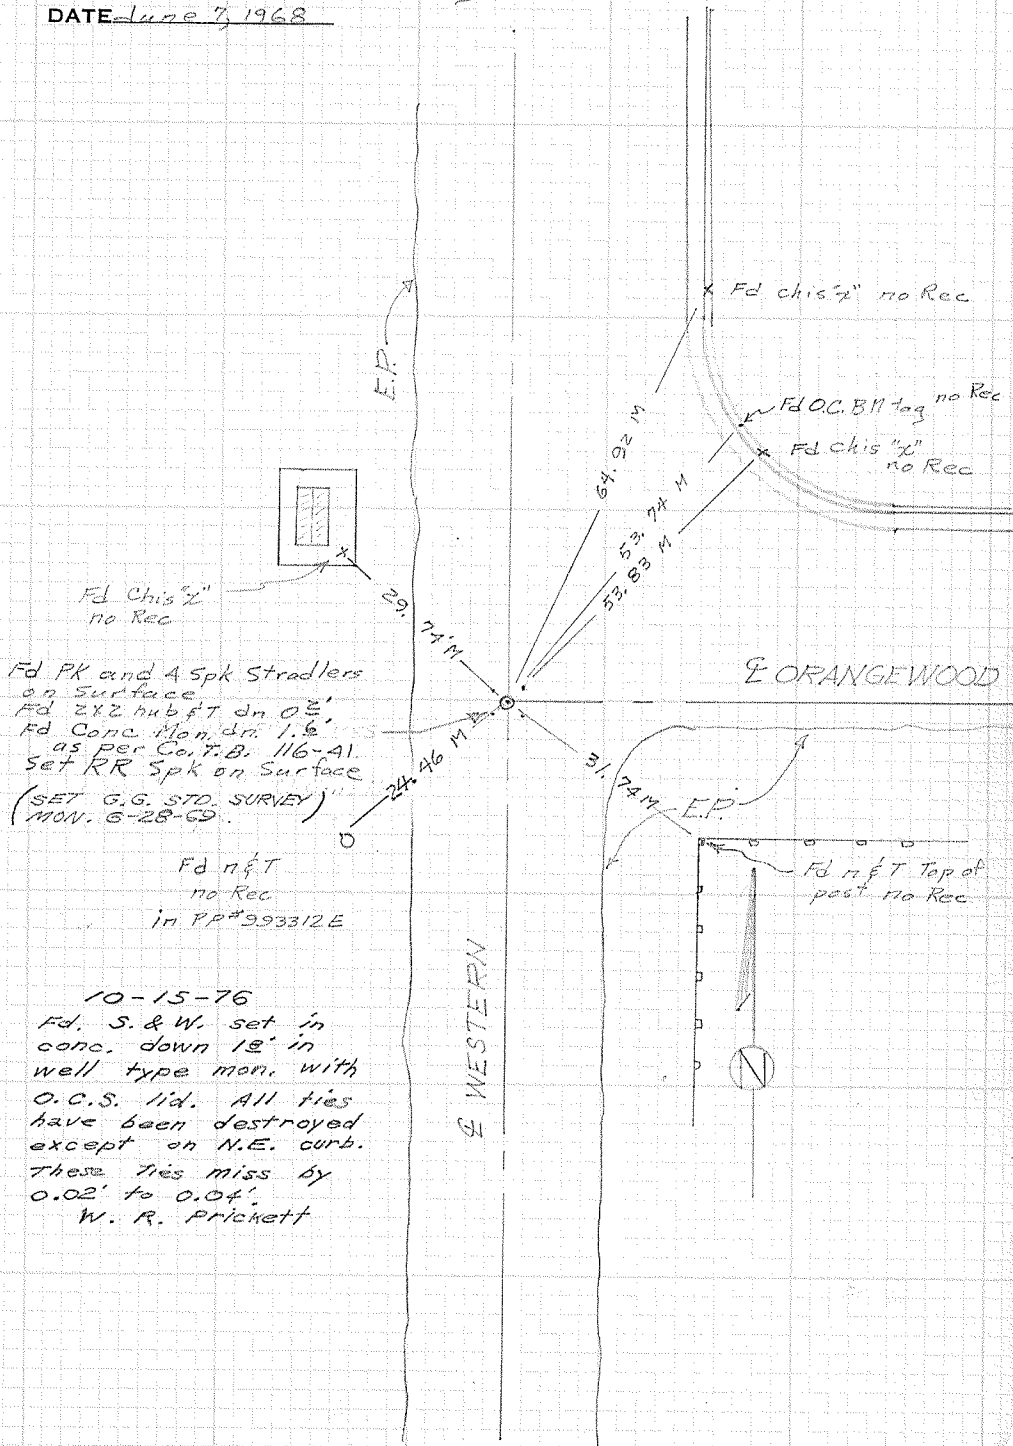 DATE June 7, 1968
Fd chis "x" no Rec
E.P.
Fd O.C. BM tag no Rec
Fd chis "x"
no Rec
64.92 M
53.74 M
53.83 M
Fd Chis "x"
no Rec
29.74' M
Fd PK and 4 Spk Stradlers
on Surface
Fd 2x2 hub & T dn
Fd Conc Mon. dn. 1.6'
as per Co. T.B. 116-41
Set RR Spk on Surface
(SET G.G. STD. SURVEY)
MON. 6-28-69.
℄ ORANGEWOOD
24.46 M
31.74 M
E.P.
Fd n & T
no Rec
in PP #993312E
Fd n & T Top of
post no Rec
℄ WESTERN
N
10-15-76
Fd. S. & W. set in
conc. down in
well type mon. with
O.C.S. lid. All ties
have been destroyed
except on N.E. curb.
These Ties miss by
0.02' to 0.04'.
W. R. Prickett